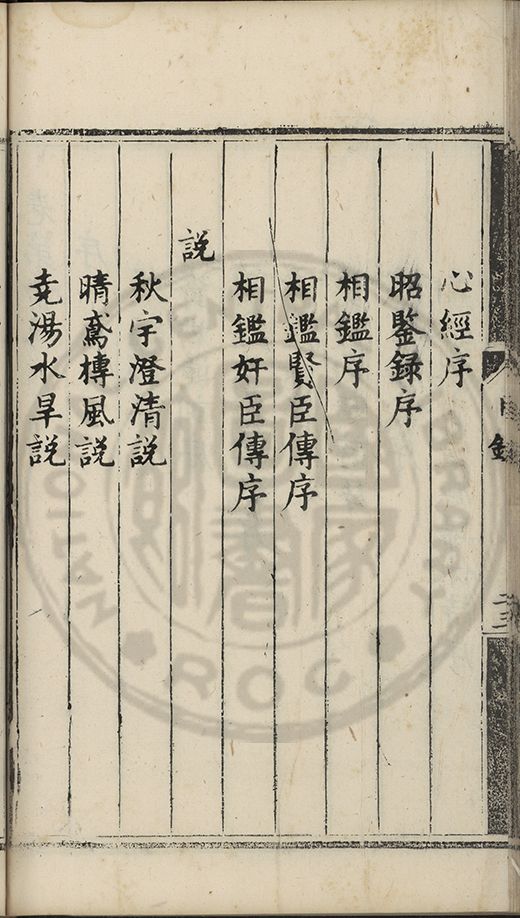 心經序
昭鑒録序
相鑑序
相鑑賢臣傳序
相鑑奸臣傳序
説
秋宇澄清説
晴鳶摶風説
尭湯水旱説